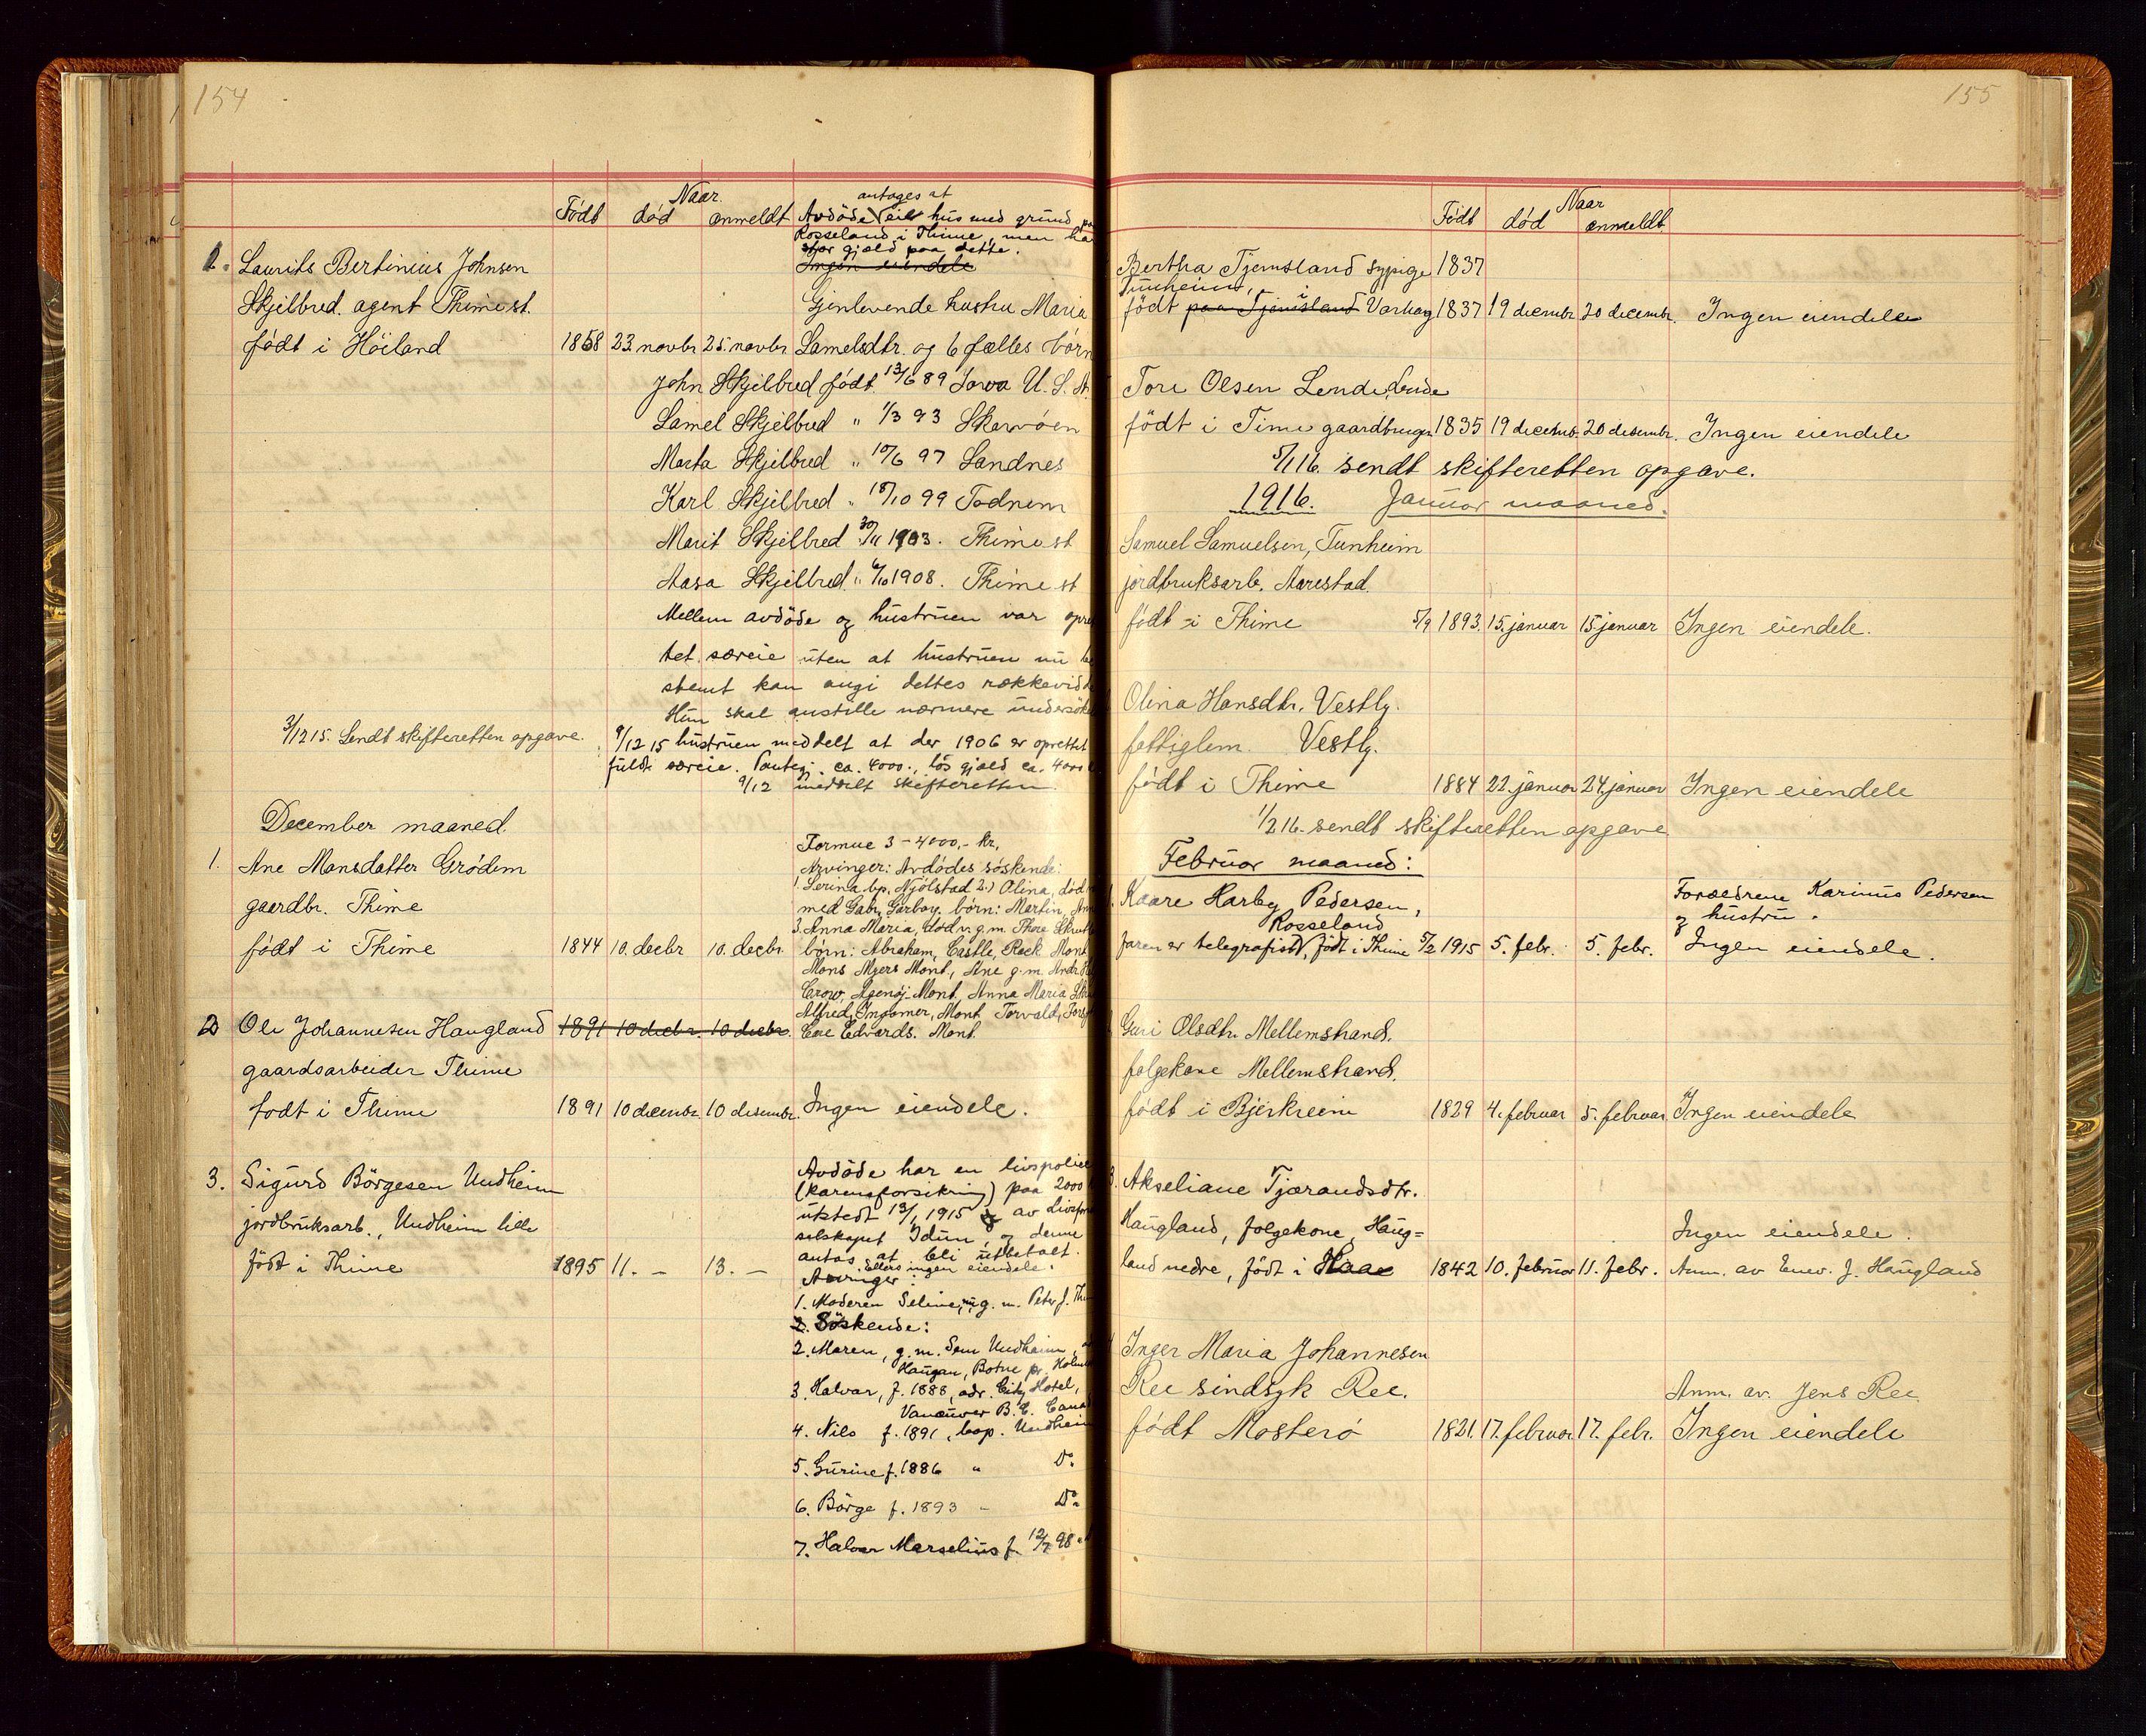 154
Født
Naar
død anmeldt
antages at
Avdöde eier hus med grund paa
Rosseland i Thime, men har
stor gjæld paa dette.
Ingen eiendele
1. Laurits Bertinius Johnsen
Skjelbred. agent Thime st. Gjenlevende hustru Maria
født i Höiland 1858 23. novbr 25. novbr Samelsdtr. og 6 fælles børn
John Skjelbred født 13/6 89 Iowa U. S. A.
Samel Skjelbred " 1/3 93 Skarvöen
Marta Skjelbred " 10/6 97 Sandnes
Karl Skjelbred " 18/10 99 Todnem
Marit Skjelbred 30/11 1903. Thime st
Aasa Skjelbred " 6/10 1908. Thime st
Mellem avdöde og hustruen var opret
tet særeie uten at hustruen nu be
stemt kan angi dettes rækkevidde
Hun skal anstille nærmere undersök
3/12 15. Sendt skifteretten opgave.
9/12 15 hustruen meddelt at der 1906 er oprettet
fuldt særeie. Pantegj. ca. 4000.-, lös gjæld ca. 4000
9/12 meddelt skifteretten
December maaned.
1. Ane Monsdatter Grödem
gaardbr. Thime
født i Thime 1844 10. decbr 10. decbr.
Formue 3 - 4000,- kr.
Arvinger: Avdödes söskende:
1. Serina bp. Njölstad 2.) Olina, död
med Gabr. Garboy. børn: Martin,
3. Anna Maria, død v. g. m. Thore
børn: Abraham, Castle, Rock Mont
Mons Myers Mont., Ane g. m. Andr.
Crow, Agensj-Mont. Anna Maria
Alfred, Ingomer, Mont Torvald,
Care Edvards. Mont.
2 Ole Johannesen Haugland 1891 10 decbr. 10 decbr.
gaardsarbeider Thime
født i Thime 1891 10 decembr. 10 desembr. Ingen eiendele.
3. Sigurd Börgesen Undheim
jordbruksarb., Undheim lille
født i Thime 1895 11. - 13. -
Avdöde har en livspolice
(karensforsikring) paa 2000
utstedt 13/1 1915 av Livsfors
selskapet Idun, og denne
antas at bli utbetalt.
Ellers ingen eiendele.
Arvinger:
1. Moderen Seline, nu g. m. Peter J.
2. Söskende:
2. Maren, g. m. Sem Undheim,
Haugan, Botne pr. Holm
3. Halvar, f. 1888, adr. City Hotel,
Vancuver B. C. Cana
4. Nils f. 1891, bop. Undheim
5. Gurine f. 1886 " Do
6. Börge f. 1893 " Do
7. Halvar Marselius f. 12/7 98 "
155
Født
Naar
død anmeldt
Bertha Tjemsland sypige 1837
Tunheim, i
født paa Tjemsland Varhaug 1837 19 decembr 20 decembr. Ingen eiendele
Tore Olsen Lende, Lende
født i Time gaardbruger 1835 19 decemb. 20 desembr. Ingen eiendele
5/1 16. sendt skifteretten opgave.
1916. Januar maaned.
Samuel Samuelsen, Tunheim
jordbruksarb. Aarestad.
født i Thime 5/9 1893. 15. januar 15 januar Ingen eiendele.
Olina Hansdtr. Vestly.
fattiglem. Vestly.
født i Thime 1884 22. januar 24. januar Ingen eiendele
1/2 16. sendt skifteretten opgave
Februar maaned:
Kaare Harby Pedersen,
Rosseland
faren er telegrafist, født i Thime 5/2 1915 5. febr. 5. febr.
Forældrene Karinus Pedersen
og hustru.
Ingen eiendele.
Guri Olsdtr. Mellemstrand.
folgekone Mellemstrand.
født i Bjerkreim 1829 4. februar 5. februar Ingen eiendele
3. Akseliane Tjærandsdtr.
Haugland, folgekone, Haug= Ingen eiendele.
land nedre, født i Haae 1842 10. februar 11. febr. Anm. av Enev. J. Haugland
Inger Maria Johannesen
Ree sindsyk Ree. Anm. av. Jens Ree
født Mosterö 1821. 17. februar. 17. febr. Ingen eiendele